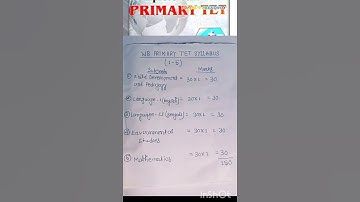 PRIMARY TET
WB PRIMARY TET SYLLABUS
(1-5)
Subjects Marks
① Child Development and Pedagogy = 30×1 = 30
② Language-I = 30×1 = 30
③ Language-II = 30×1 = 30
④ Environmental Studies = 30×1 = 30
⑤ Mathematics = 30×1 = 30
150
InShOt